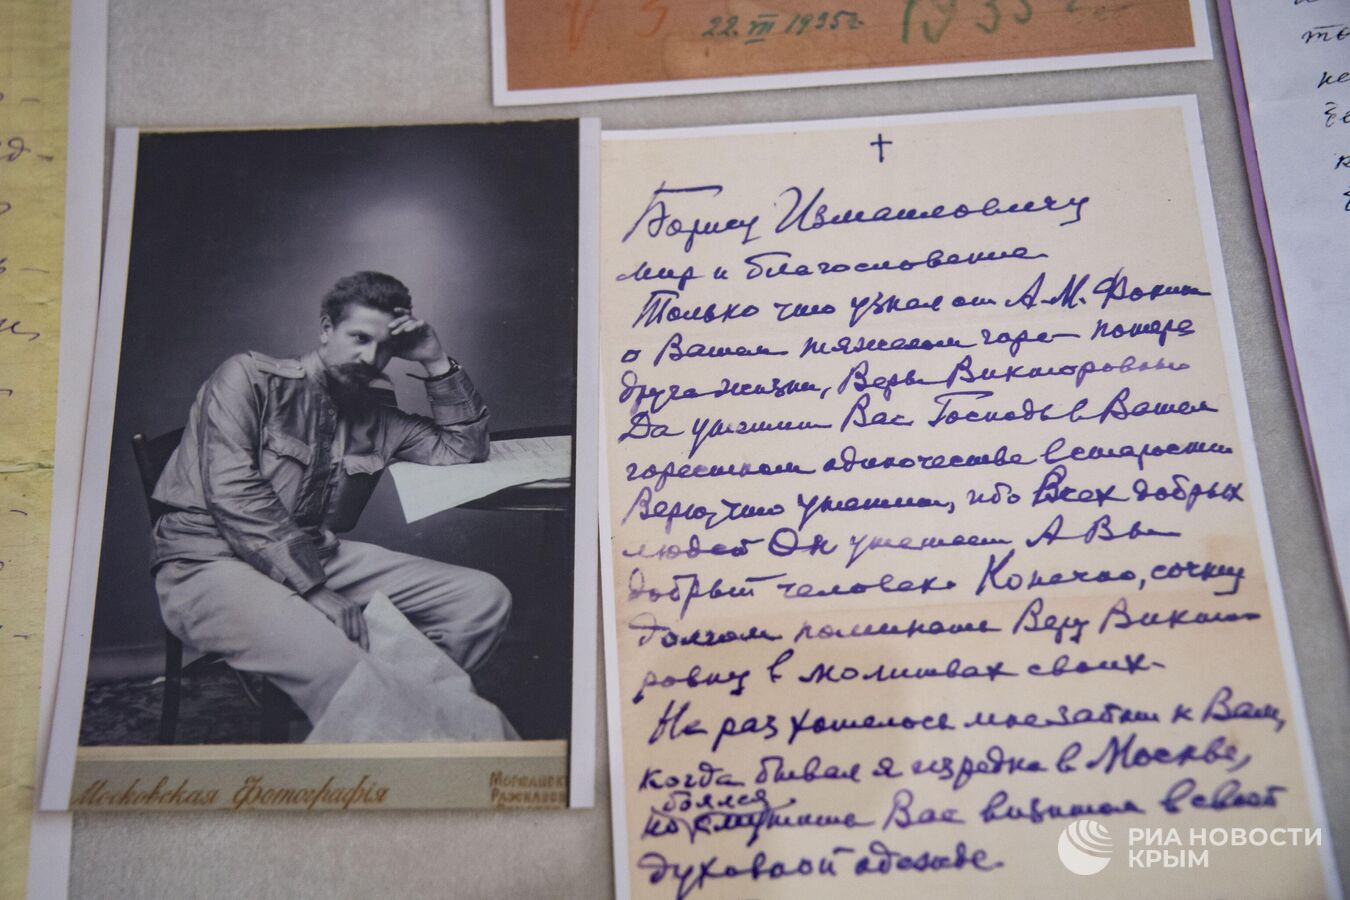 22.VII 1935г.
1935г
†
Борису Измаиловичу
мир и благословение
Только что узнал от А.М. Фокина
о Вашем тяжелом горе – потере
друга жизни, Веры Викторовны
Да утешит Вас Господь в Вашем
горестном одиночестве в старости
Верю, что утешит, ибо Всех добрых
людей Он утешает А Вы
добрый человек. Конечно, сочту
долгом поминать Веру Викто-
ровну в молитвах своих.
Не раз хотелось мне зайти к Вам,
когда бывал я изредка в Москве,
боялся
но смутить Вас визитом в своей
духовной одежде.
Московская Фотографія
РИА НОВОСТИ
КРЫМ